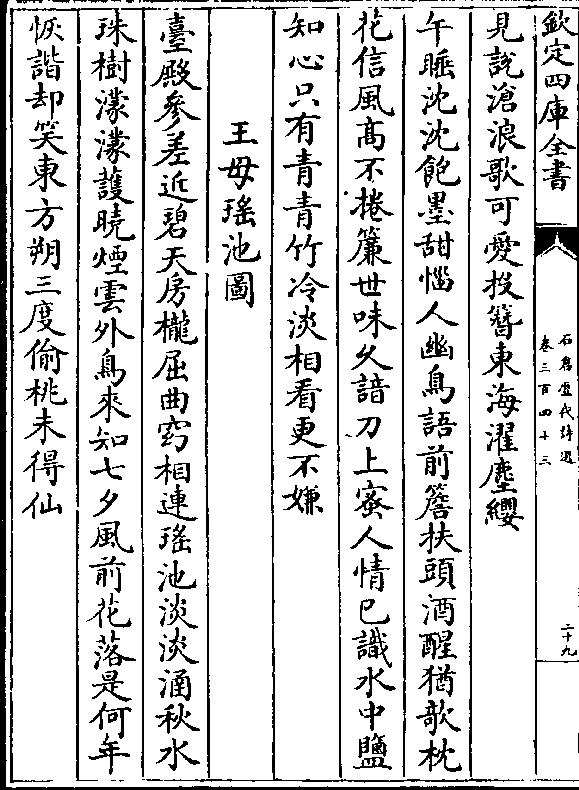 欽定四庫全書
石倉歷代詩選
卷三百四十三
二十九
見說滄浪歌可愛投簪東海濯塵纓
午睡沈沈飽墨甜惱人幽鳥語前簷扶頭酒醒猶歌枕
花信風髙不捲簾世味久諳刀上蜜人情已識水中鹽
知心只有青青竹冷淡相看更不嫌
王母瑶池圖
臺殿參差近碧天房櫳屈曲窈相連瑤池淡淡涵秋水
珠樹濛濛護曉煙雲外鳥來知七夕風前花落是何年
恢諧却笑東方朔三度偷桃未得仙